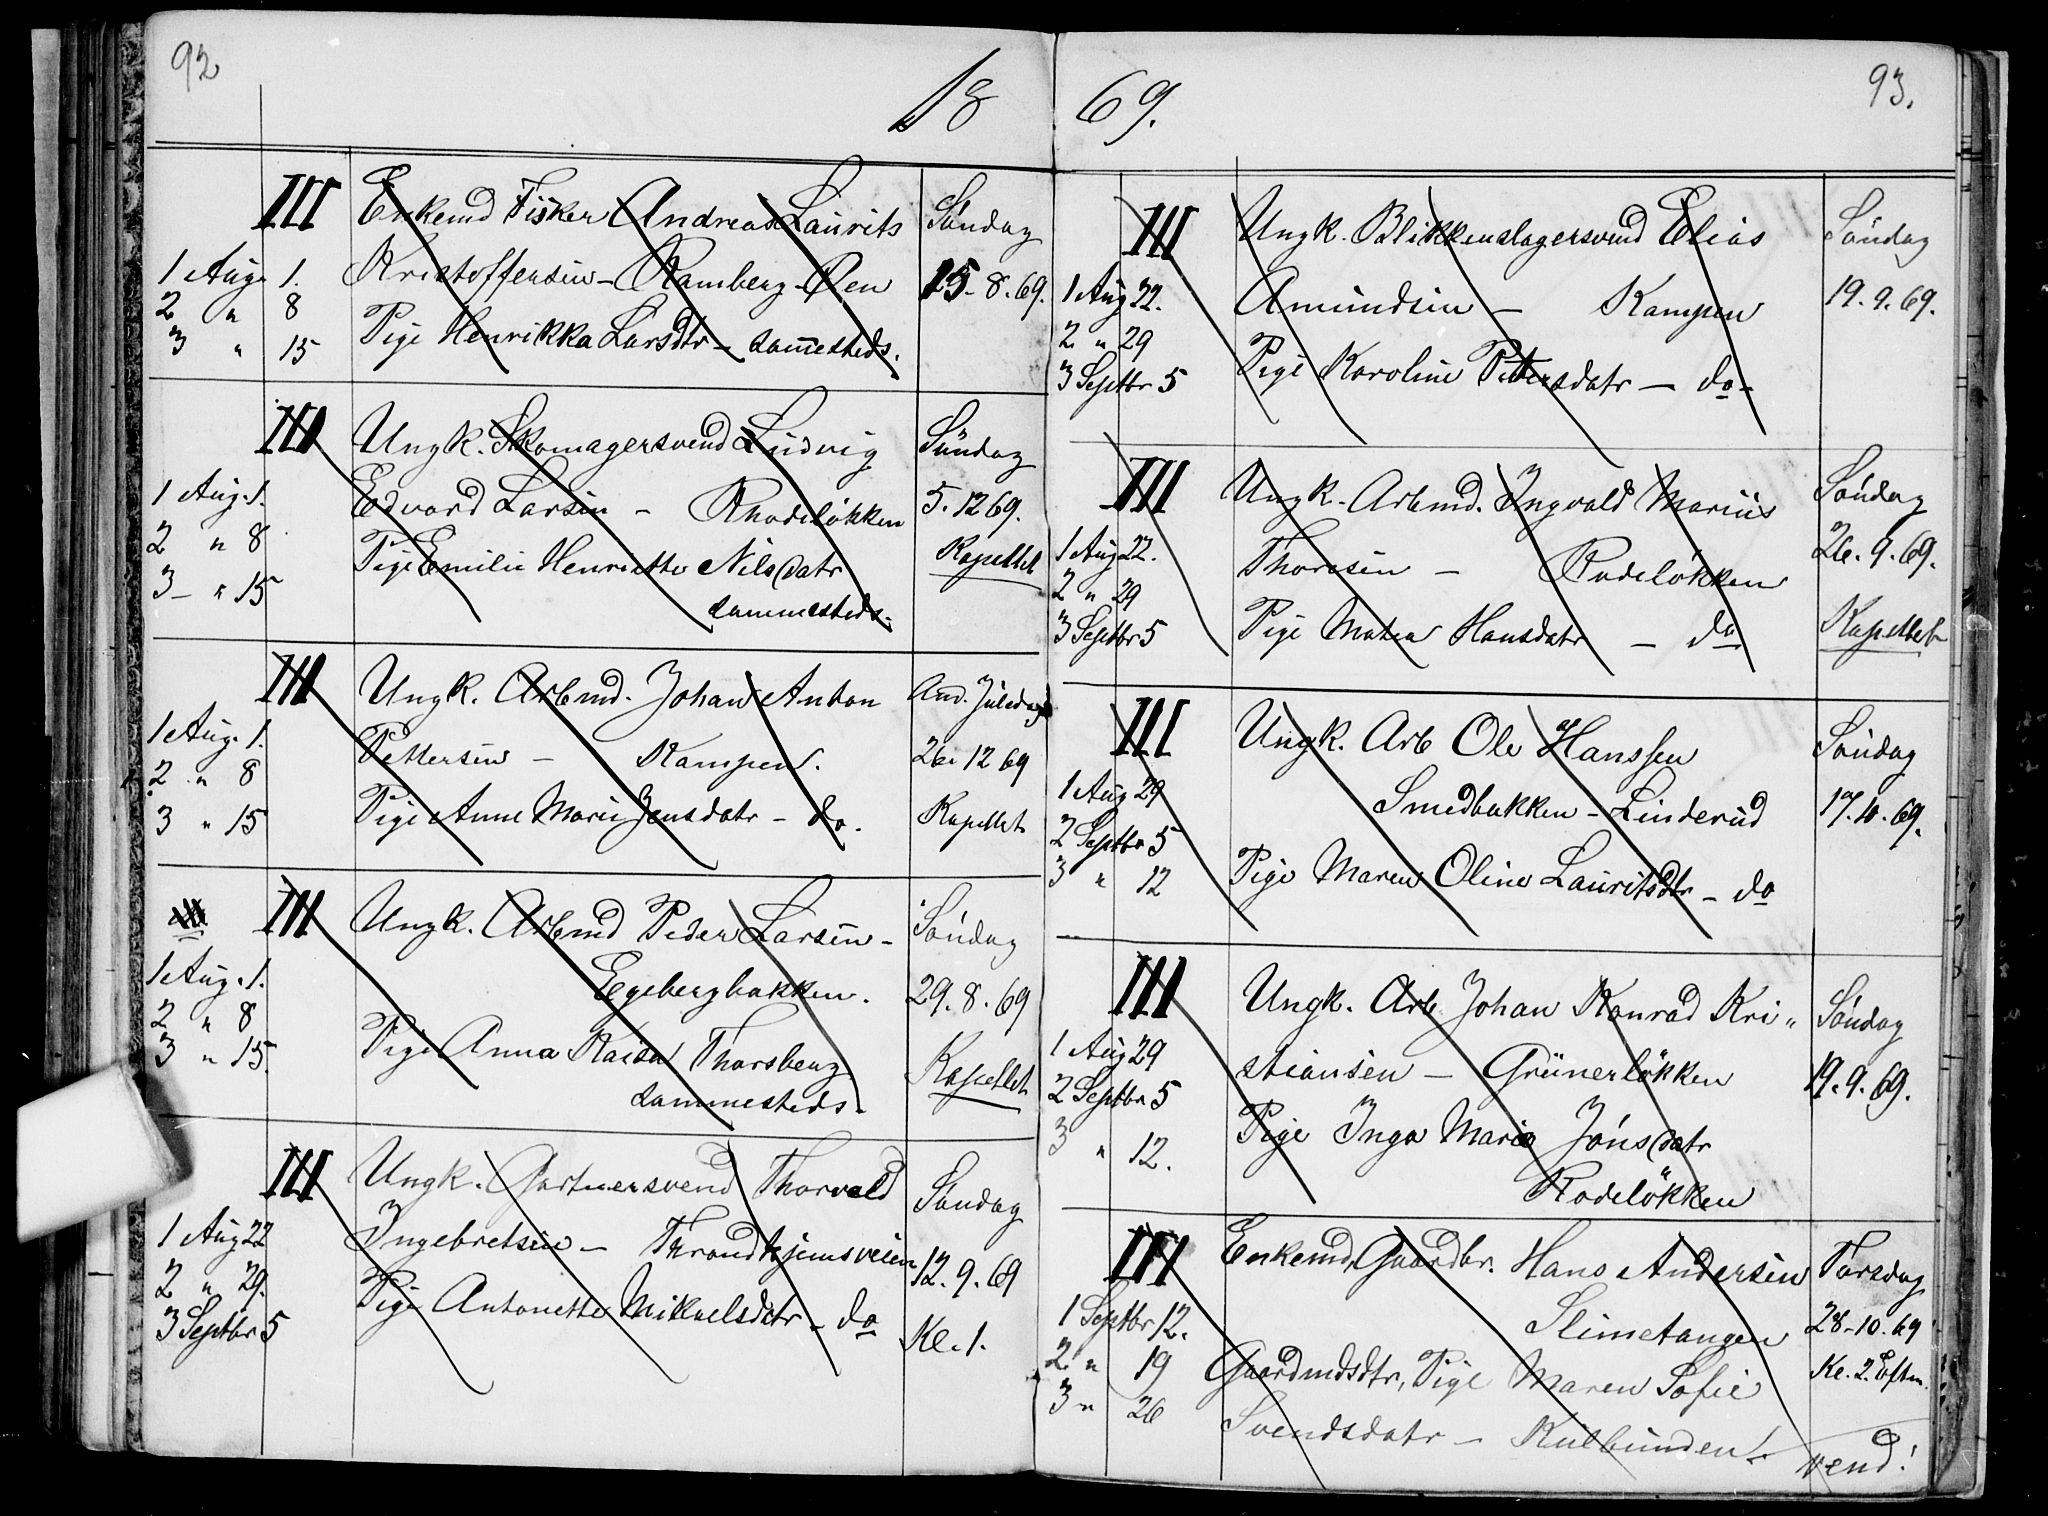 92
18
III Enkemd Fisker Andreas Laurits Söndag
1 Aug. 1. Kristoffersen - Ramberg-Öen 15-8.69.
2 " 8
3 " 15 Pige Henrikka Larsdtr - sammesteds.
III Ungk. Skomagersvend Ludvig Söndag
1 Aug. 1. Edvard Larsen - Rhodeløkken 5.12 69.
2 " 8 Pige Emilie Henriette Nilsdatr Kapellet
3 - " 15 sammesteds.
III Ungk. Arbmd. Johan Anton And. Juledag
1 Aug. 1. Pettersen - Kampen. 26. 12 69
2 " 8
3 " 15 Pige Anne Marie Jensdatr - do. Kapellet
III Ungk. Arbmd Peder Larsen - Söndag
1 Aug. 1. Egebergbakken. 29.8.69
2 " 8
3 " 15. Pige Anna Kaisa Thorsberg Kapellet
sammesteds.
III Ungk. Gartnersvend Thorvald Söndag
1 Aug 22 Ingebretsen - Throndhjemsveien 12.9.69
2 " 29.
3 Septbr 5 Pige Antonette Mikaelsdatr - do Kl. 1.
93.
69.
III Ungk. Blikkenslagersvend Elias Söndag
1 Aug 22. Amundsen - Kampen 19.9.69.
2 " 29
3 Septbr 5 Pige Karoline Petersdatr - do -
III Ungk. Arbmd. Ingvald Marius Söndag
1 Aug 22. Thoresen - Rodeløkken 26.9.69.
2 " 29
3 Septbr 5 Pige Mahsdatr - do Kapellet
III Ungk. Arb Ole Hanssen Söndag
1 Aug 29 Smedbakken - Linderud 17.10.69.
2 Septbr 5
3 " 12 Pige Maren Oline Lauritsdtr - do
III Ungk. Arb. Johan Konrad Kri" Söndag
1 Aug 29 stiansen - Grünerløkken 19.9.69.
2 Septbr 5
3 " 12. Pige Inga Marie Jónsdatr
Rodeløkken
III Enkemd, Gaardbr. Hans Andersen Torsdag
1 Septbr 12. Slimetangen 28-10.69
2 " 19 Gaardmdsdtr, Pige Maren Sofie Kl. 2. Eftm.
3 " 26 Svendsdatr - Kulbunden
vend!